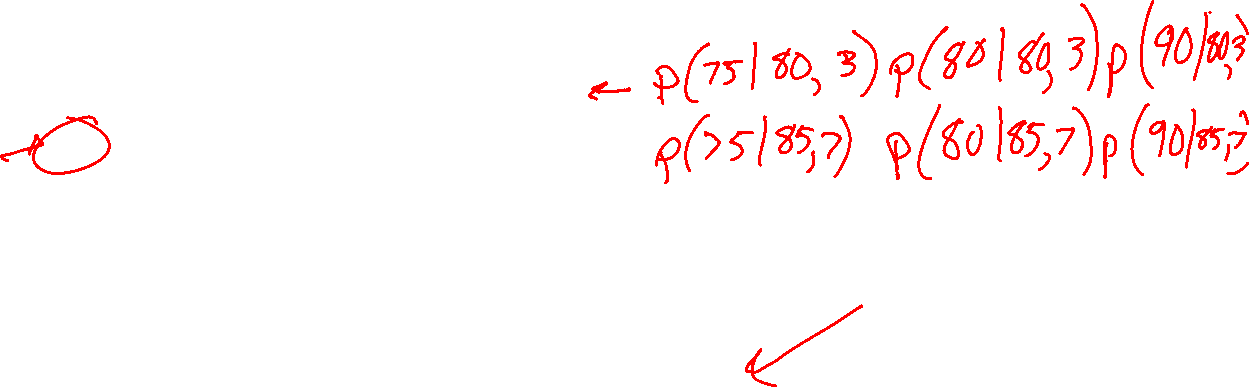 ← p(75|80, 3) p(80|80, 3) p(90|80,3)
p(75|85,7) p(80|85,7) p(90|85,7)